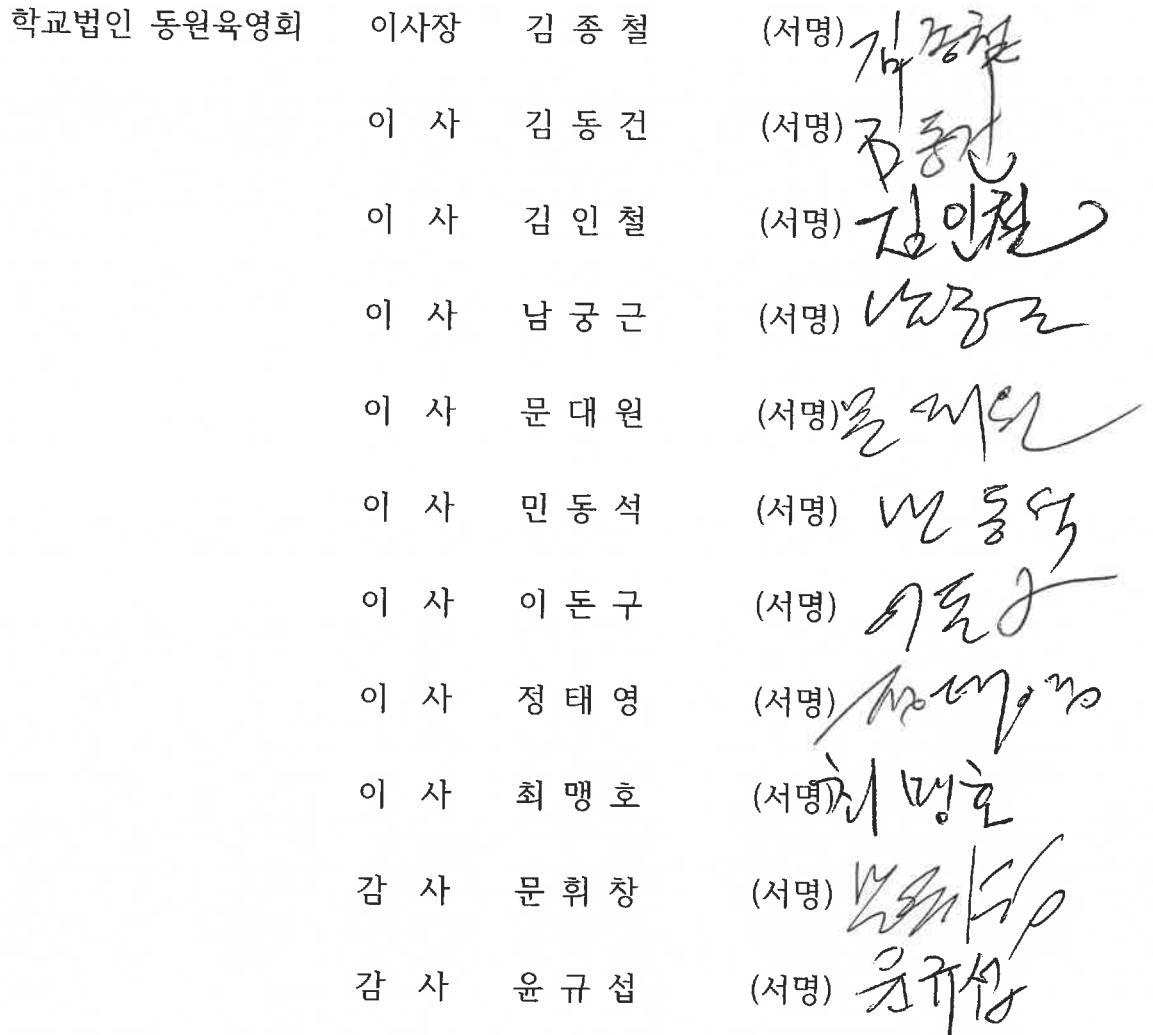 학교법인 동원육영회 이사장 김 종 철 (서명) 김종철
이 사 김 동 건 (서명) 김동건
이 사 김 인 철 (서명) 김인철
이 사 남 궁 근 (서명) 남궁근
이 사 문 대 원 (서명) 문대원
이 사 민 동 석 (서명) 민동석
이 사 이 돈 구 (서명) 이돈구
이 사 정 태 영 (서명) 정태영
이 사 최 맹 호 (서명) 최맹호
감 사 문 휘 창 (서명) 문휘창
감 사 윤 규 섭 (서명) 윤규섭